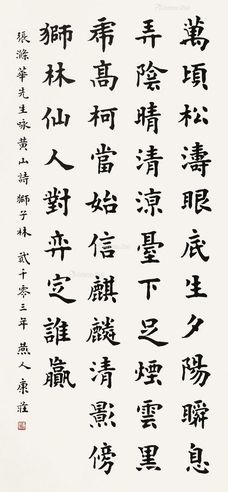 萬頃松濤眼底生夕陽瞬息
弄陰晴清涼臺下足煙雲黑
乕高柯當始信麒麟清影傍
獅林仙人對弈定誰贏
張滌華先生咏黃山詩獅子林 貳千零三年 燕人康莊